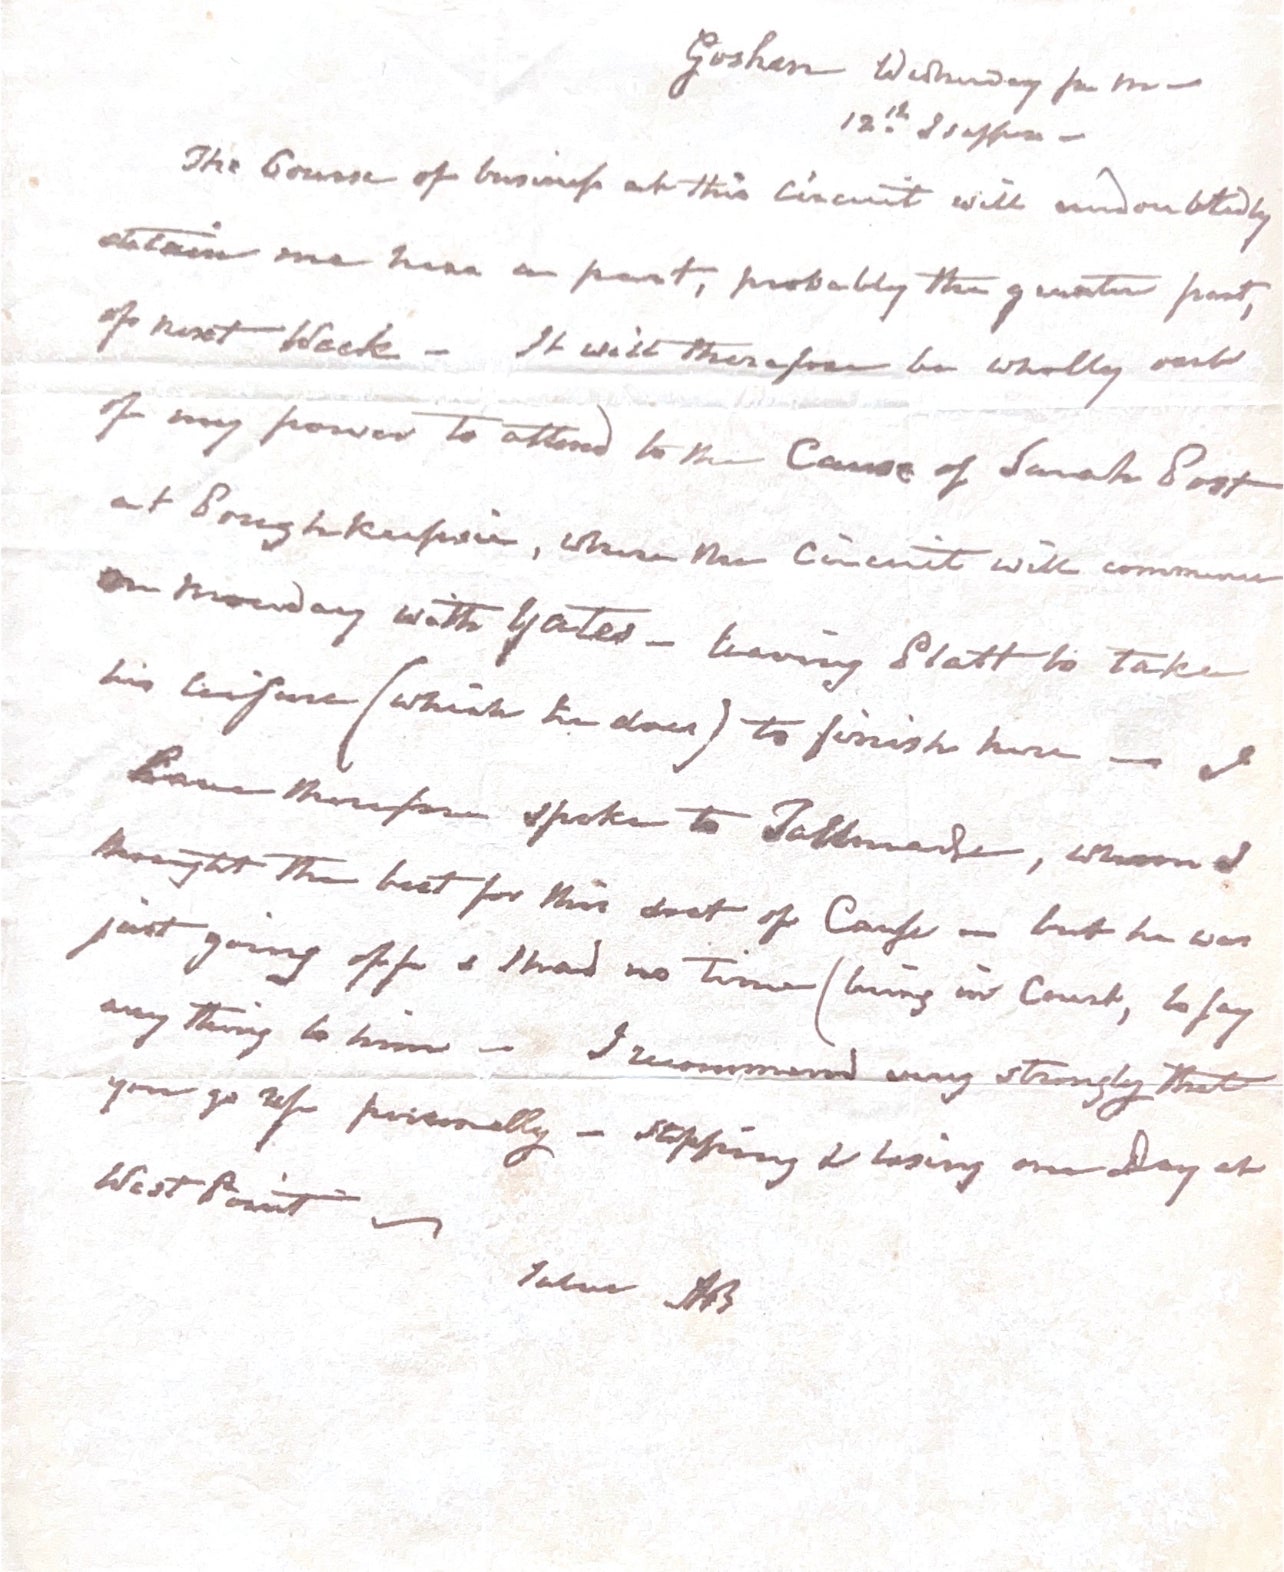 Goshen Wednesday p m —
12th I suppose —
The Course of business at this Circuit will undoubtedly
detain me here a part, probably the greater part,
of next Week — It will therefore be wholly out
of my power to attend to the Cause of Sarah Post
at Poughkeepsie, where the Circuit will commence
on Monday with Yates — leaving Platt to take
his leisure (which he does) to finish here — I
have therefore spoke to Tallmadge, whom I
thought the best for this sort of Cause — but he was
just going off & I had no time (being in Court, to say
any thing to him — I recommend very strongly that
you go up personally — stopping & losing one Day at
West Point —
AB